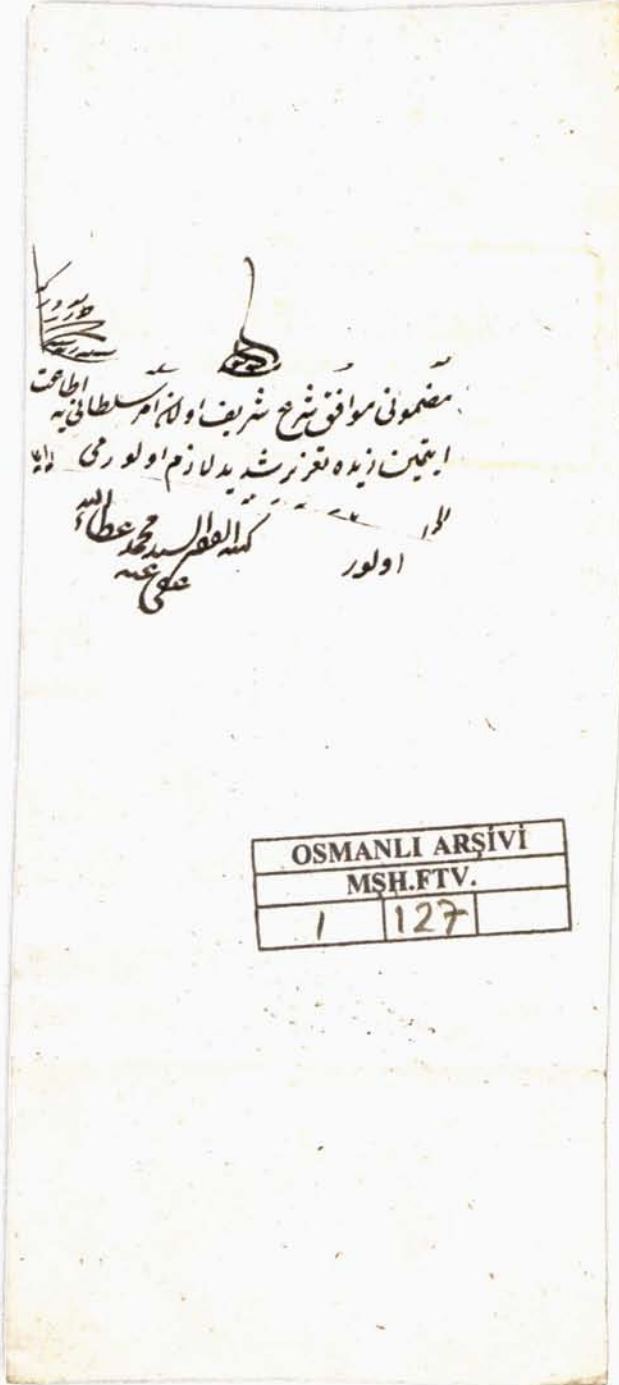 مضمونی موافق شرع شریف اولان امر سلطانی‌یه اطاعت
ایتمین زیده تعزیر شدید لازم اولورمی
الجواب
اولور
کتبه الفقیر السید محمد عطاءالله
عفی عنه
OSMANLI ARŞİVİ
MŞH.FTV.
1 127